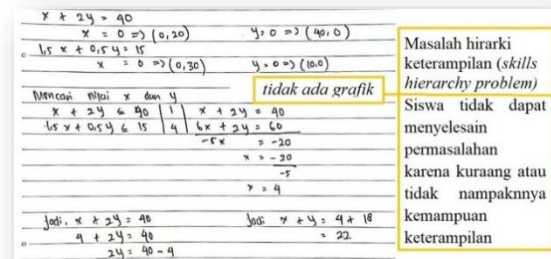 x + 2y = 40
x = 0 => (0,20) y = 0 => (40,0)
1,5 x + 0,5 y = 15
x = 0 => (0,30) y = 0 => (10,0)
tidak ada grafik
Mencari nilai x dan y
x + 2y ≤ 40 | 1 | x + 2y = 40
1,5 x + 0,5 y ≤ 15 | 4 | 6x + 2y = 60
-5x = -20
x = -20
-5
x = 4
Jadi, x + 2y = 40 Jadi x + y = 4 + 18
4 + 2y = 40 = 22
2y = 40 - 4
Masalah hirarki
keterampilan (skills
hierarchy problem)
Siswa tidak dapat
menyelesain
permasalahan
karena kuraang atau
tidak nampaknnya
kemampuan
keterampilan